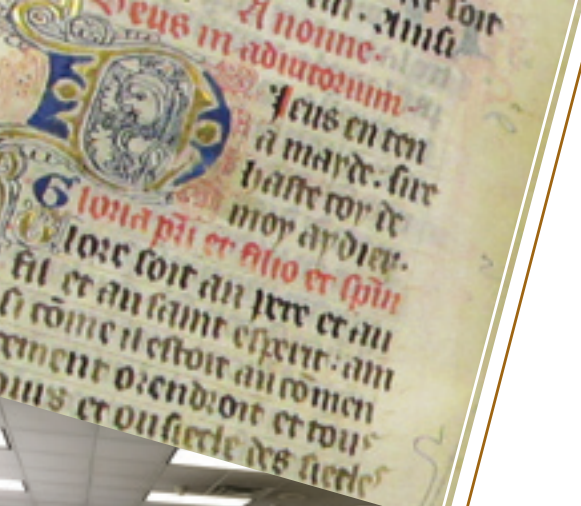 soit
A nonne. Ainsi
Deus in adiutorium
Deus en ten
a mayde. sire
haste toy de
moy aydier.
Gloria pri et filio et spiri
lore soit au pere et au
fil et au saint esperit: am
si come il estoit au comen
cement orendroit et tous
iours et ou siecle des siecles